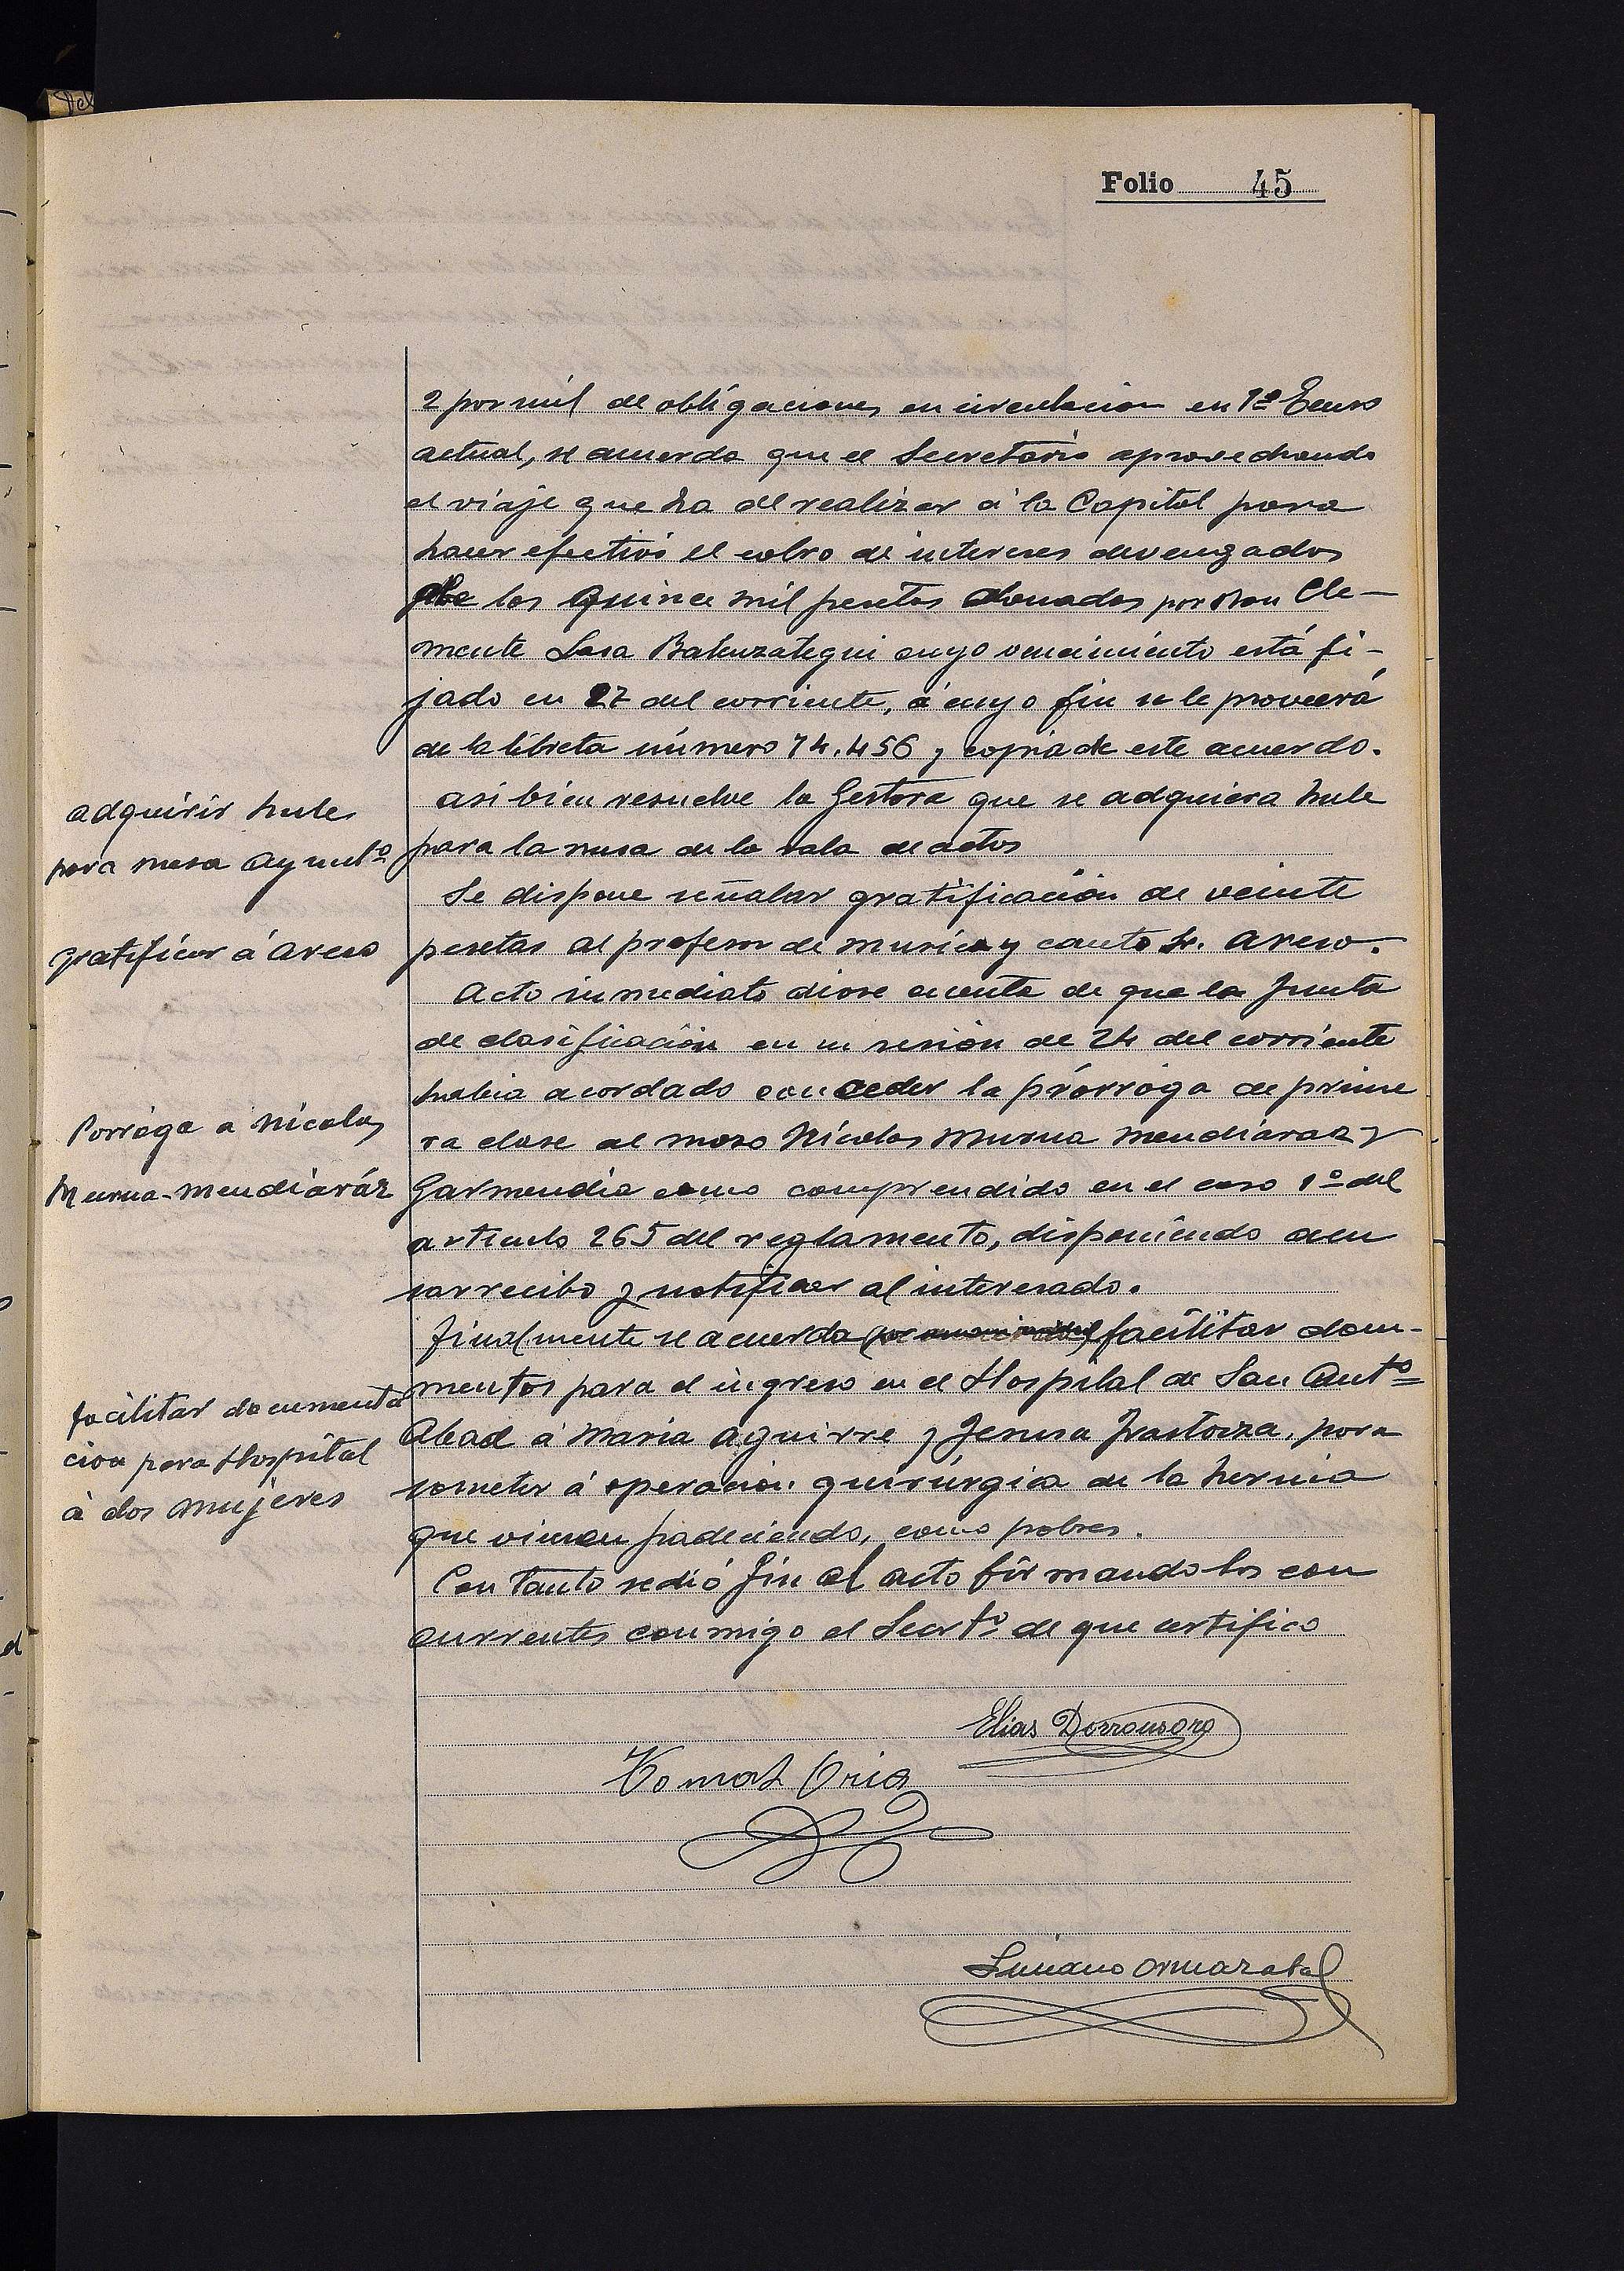 Folio 45
2 por mil de obligaciones en circulacion en 1º Enero
actual, se acuerda que el Secretario aprovechando
el viaje que ha de realizar á la Capital para
hacer efectivo el cobro de intereses devengados
de las quince mil pesetas donadas por Don Cle-
mente Lasa Balenzategui cuyo vencimiento está fi-
jado en 27 del corriente, á cuyo fin se le proveerá
de la libreta número 74.456 y copia de este acuerdo.
adquirir hule
para mesa Ayuntº
asi bien resuelve la Gestora que se adquiera hule
para la mesa de la sala de actos
gratificar á Areso
Se dispone señalar gratificación de veinte
pesetas al profesor de musica y canto Sr. Areso.
Acto inmediato diose cuenta de que la Junta
de clasificación en su sesión de 24 del corriente
habia acordado conceder la prórroga de prime
Porróga a Nicolas
Murua-Mendiaráz
ra clase al mozo Nicolas Murua Mendiaraz y
Garmendia como comprendido en el caso 1º del
articulo 265 del reglamento, disponiendo acu
sar recibo y notificar al interesado.
facilitar documenta
cion para Hospital
á dos mujeres
finalmente se acuerda facilitar docu-
mentos para el ingreso en el Hospital de San Antº
Abad á Maria Aguirre y Jerusa Irastorza, para
someter á operación quirúrgica de la hernia
que vienen padeciendo, como pobres.
Con tanto se dió fin al acto firmando los con
currentes conmigo el Secrtº de que certifico
Elias Dorronsoro
Tomas Oria
Luciano Ormazabal